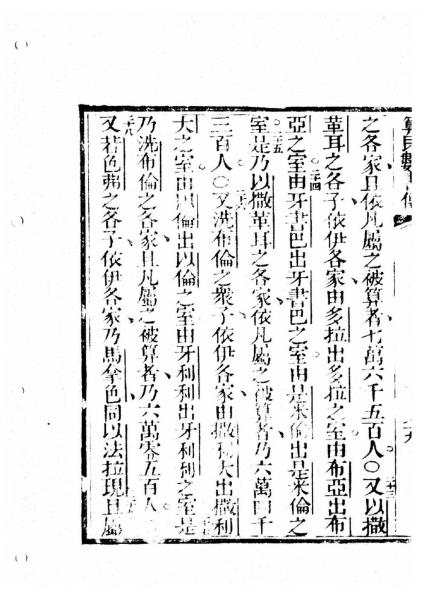 算民數書傳
之各家且依凡屬之被算者七萬六千五百人〇又以撒
革耳之各子依伊各家由多拉出多拉之室由布亞出布
亞之室由牙書巴出牙書巴之室由是米倫出是米倫之
室是乃以撒革耳之各家依凡屬之被算者乃六萬四千
三百人〇又洗布倫之衆子依伊各家由撒利大出撒利
大之室由以倫出以倫之室由牙利利出牙利利之室是
乃洗布倫之各家且凡屬之被算者乃六萬零五百人
又若色弗之各子依伊各家乃馬拿色同以法拉現且屬